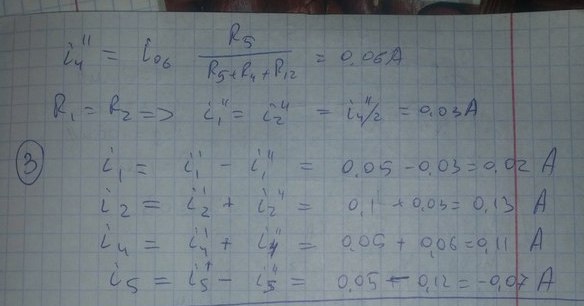 i₄'' = i₀₆ R₅ / (R₅+R₄+R₁₂) = 0,06A
R₁ = R₂ => i₁'' = i₂'' = i₄''/2 = 0,03A
③ i₁ = i₁' - i₁'' = 0,05 - 0,03 = 0,02 A
i₂ = i₂' + i₂'' = 0,1 + 0,03 = 0,13 A
i₄ = i₄' + i₄'' = 0,05 + 0,06 = 0,11 A
i₅ = i₅' - i₅'' = 0,05 - 0,12 = -0,07 A